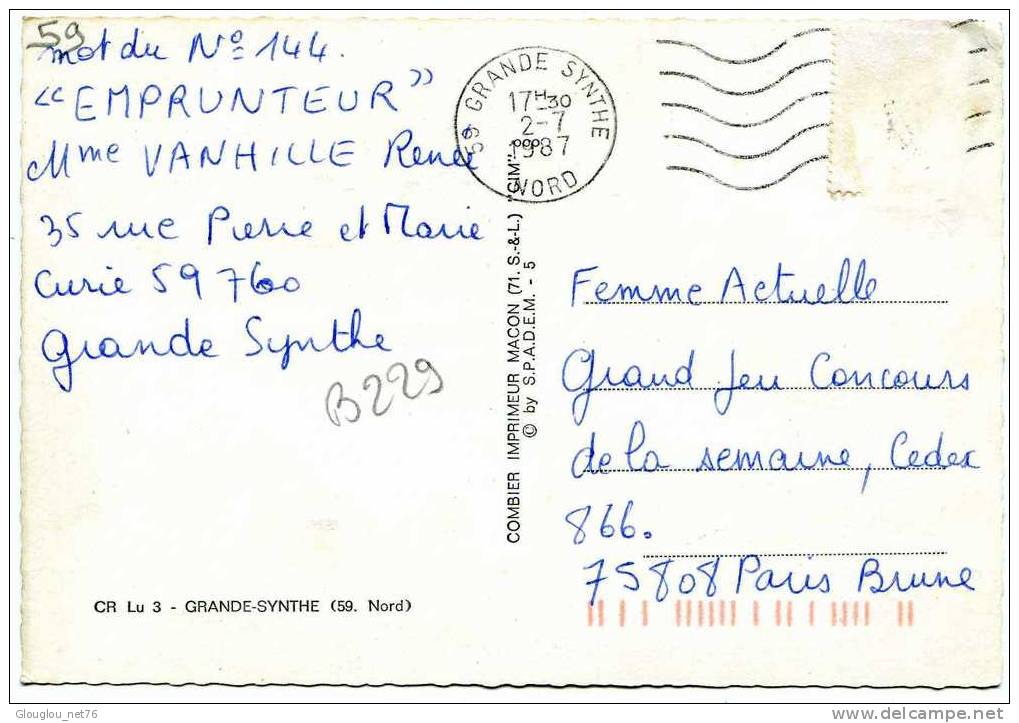 59
mot du Nº 144.
"EMPRUNTEUR"
Mme VANHILLE Renée
35 rue Pierre et Marie
Curie 59760
Grande Synthe
B229
CR Lu 3 - GRANDE-SYNTHE (59. Nord)
COMBIER IMPRIMEUR MACON (71. S.-&-L.) "CIM"
© by S.P.A.D.E.M. - 5
59 GRANDE SYNTHE
17H30
2-7
1987
NORD
Femme Actuelle
Grand Jeu Concours
de la semaine, Cedex
866.
75808 Paris Brune
Glouglou_net76
www.delcampe.net